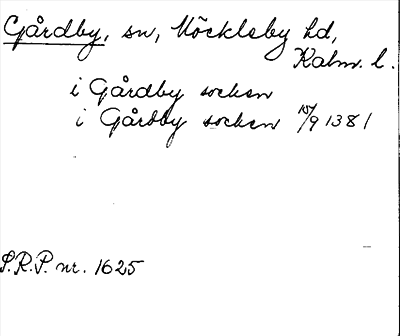 Gårdby, sn, Möckleby hd,
Kalm. l.
i Gårdby socken
i Gårdby socken 15/9 1381
S.R.P. nr. 1625